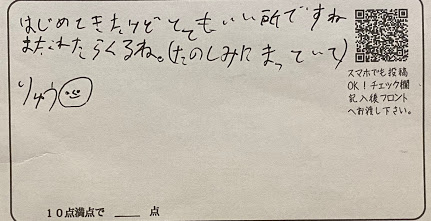 はじめてきたけどとてもいい所ですね
まだこれたらくるね。(たのしみにまっていて)
りゅう
スマホでも投稿
OK！チェック欄
記入後フロント
へお渡し下さい。
10点満点で ____ 点